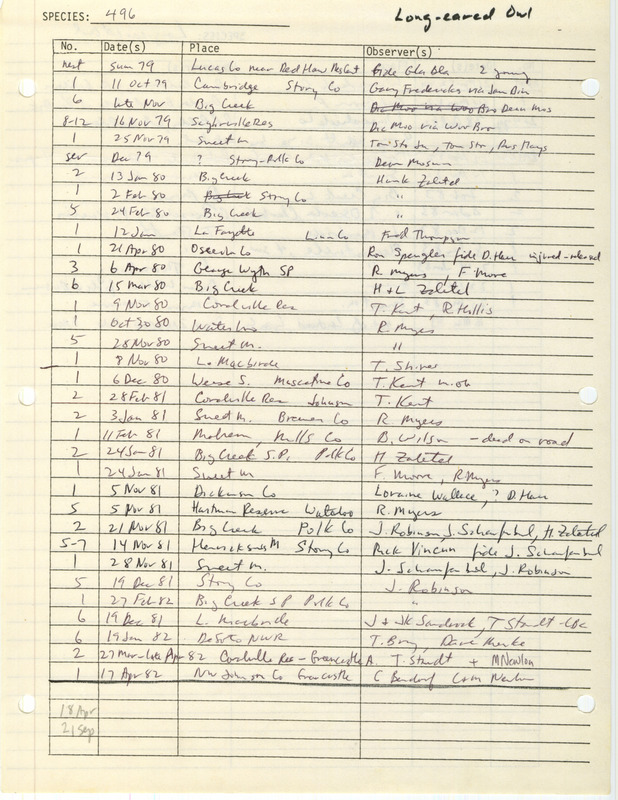 SPECIES: 496 Long-eared Owl
No. Date(s) Place Observer(s)
nest Sum 79 Lucas Co near Red Haw fide Gla Bla 2 young
1 11 Oct 79 Cambridge Story Co Gary Fredericks via Jan Din
6 late Nov Big Creek Dic Moo via Woo Bro Dean Mos
8-12 16 Nov 79 Saylorville Res Dic Moo via Woo Bro
1 25 Nov 79 Sweet M. Tom Sto Jr, Tom Sto, Rus Hays
sev Dec 79 ? Story-Polk Co Dean Mosman
2 13 Jan 80 Big Creek Hank Zaletel
1 2 Feb 80 Story Co "
5 24 Feb 80 Big Creek "
1 12 Jan La Fayette Linn Co Fred Thompson
1 21 Apr 80 Osceola Co Ron Spengler fide D. Harr injured-released
3 6 Apr 80 George Wyth SP R. Myers, F Moore
6 15 Mar 80 Big Creek H + L Zaletel
1 9 Nov 80 Coralville Res T. Kent, R. Hollis
1 Oct 30 80 Waterloo R. Myers
5 28 Nov 80 Sweet M. "
1 8 Nov 80 L. Macbride T. Shires
1 6 Dec 80 Weise S. Muscatine Co T. Kent m.ob
2 28 Feb 81 Coralville Res Johnson T. Kent
2 3 Jan 81 Sweet M. Bremer Co R. Myers
1 11 Feb 81 Malvern, Mills Co B. Wilson - dead on road
2 24 Jan 81 Big Creek S.P. Polk Co H Zaletel
1 24 Jan 81 Sweet M F. Moore, R. Myers
1 5 Nov 81 Dickinson Co Loraine Wallace, ? D. Harr
5 5 Nov 81 Hartman Reserve Waterloo R. Myers
2 21 Nov 81 Big Creek Polk Co J. Robinson J. Schaufenbuel, H. Zaletel
5-7 14 Nov 81 Hendrickson M Story Co Rick Vincent fide J. Schaufenbuel
1 28 Nov 81 Sweet M. J. Schaufenbuel, J. Robinson
5 19 Dec 81 Story Co J. Robinson
1 27 Feb 82 Big Creek SP Polk Co "
6 19 Dec 81 L. Macbride J + JK Sandrock, T Staudt - CBC
6 19 Jan 82 DeSoto NWR T. Bray, Dave Menke
2 27 Mar - late Apr 82 Coralville Res - Greencastle A. T. Staudt + M Newlon
1 17 Apr 82 NW Johnson Co Greencastle C Bendorf Com Newlon
18 Apr
21 Sep